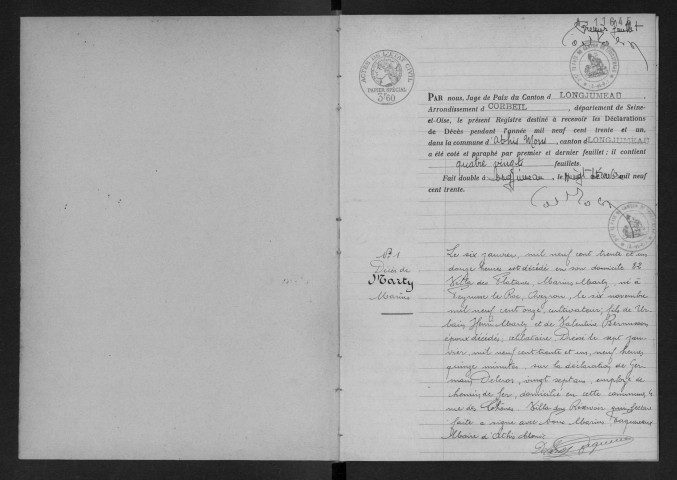 Premier feuillet
ACTES DE L'ETAT CIVIL
PAPIER SPÉCIAL
3F60
PAR nous, Juge de Paix du Canton d LONGJUMEAU,
Arrondissement d CORBEIL, département de Seine-
et-Oise, le présent Registre destiné à recevoir les Déclarations
de Décès pendant l'année mil neuf cent trente et un,
dans la commune d'Athis Mons, canton d LONGJUMEAU
a été coté et paraphé par premier et dernier feuillet; il contient
quatre vingts feuillets.
Fait double à Longjumeau, le vingt décembre mil neuf
cent trente.
N° 1
Décès de
Marty
Marius
Le six janvier, mil neuf cent trente et un
douze heures est décédé en son domicile 82
Villa des Platanes, Marius Marty, né à
le Roc, Aveyron, le six novembre
mil neuf cent onze, cultivateur, fils de Ur-
bain Marty et de Valentine
époux décédés, célibataire. Dressé le sept jan-
vier mil neuf cent trente et un, neuf heures
quinze minutes, sur la déclaration de Ger-
main Delcros, vingt sept ans, employé de
chemin de fer, domicilié en cette commune,
rue des Villa du Réservoir qui lecture
faite a signé avec Nous Marius
Maire d'Athis Mons.